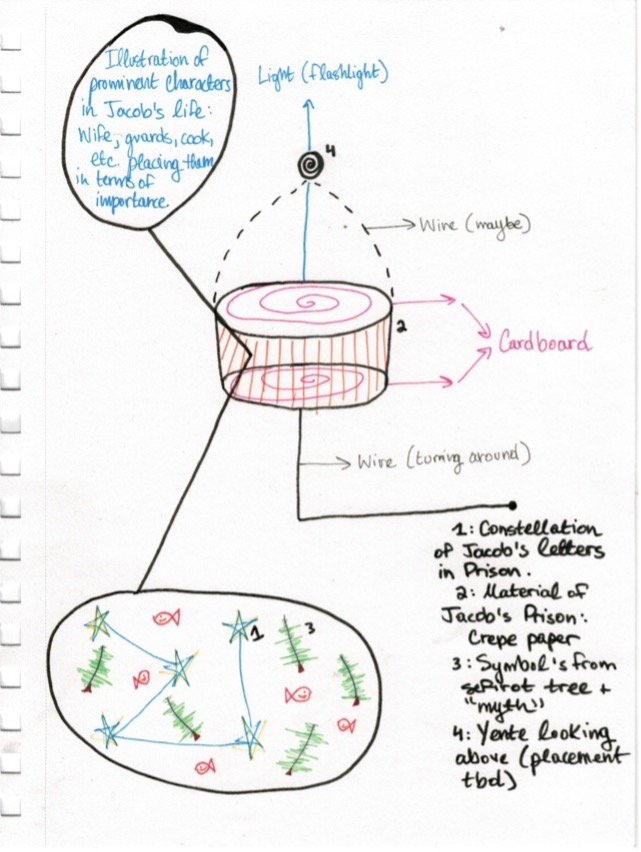 Illustration of
prominent characters
in Jacob's life:
Wife, guards, cook,
etc. placing them
in terms of
importance.
Light (flashlight)
4
Wire (maybe)
2
Cardboard
Wire (turning around)
1: Constellation
of Jacob's letters
in Prison.
2: Material of
Jacob's Prison:
Crepe paper
3: Symbol's from
sefirot tree +
"myth"
4: Yente looking
above (placement
tbd)
1
3